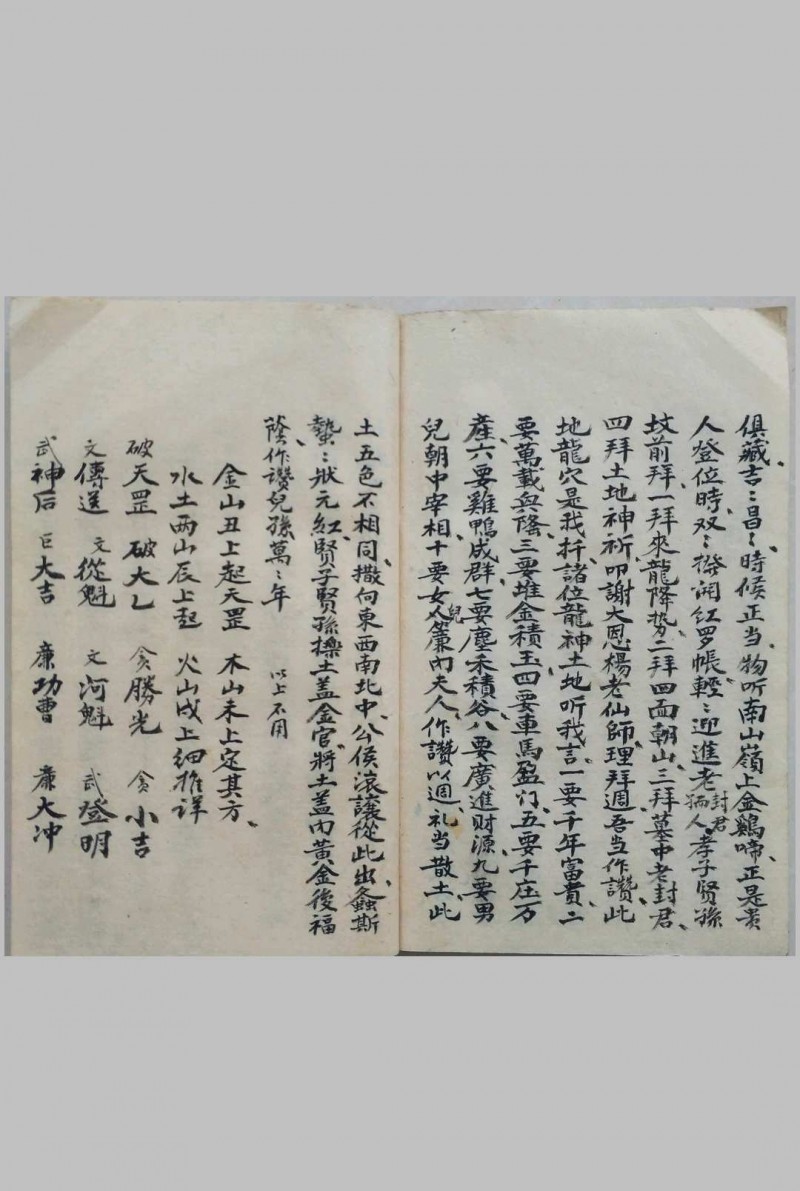 俱藏、吉〻昌〻、時候正当、物听南山嶺上金鷄啼、正是贵
人登位時、双〻撥開红罗帳、輕〻迎進老封君孺人、孝子賢孫
坟前拜、一拜來龍降势、二拜四面朝山、三拜墓中老封君、
四拜土地神祈、叩謝大恩楊老仙師、理拜週、吾当作讚、此
地龍穴是我扦、諸位龍神土地听我言、一要千年富貴、二
要萬載興隆、三要堆金積玉、四要車馬盈门、五要千庄万
產、六要雞鴨成群、七要塵禾積谷、八要廣進财源、九要男
兒朝中宰相、十要女兒簾內夫人、作讚以週、礼当散土、此
土五色不相同、撒向東西南北中、公侯滚讓從此出、螽斯
蟄〻狀元紅、賢子賢孫攃土盖金官、將土盖內黃金後福
蔭、作讚兒孫萬〻年　以上不用
金山丑上起天罡　木山未上定其方、
水土両山辰上起　火山戌上细推详
破天罡　破大乙　贪勝光　贪小吉
文傳送　文從魁　文河魁　武登明
武神后　巨大吉　廉功曹　廉大冲